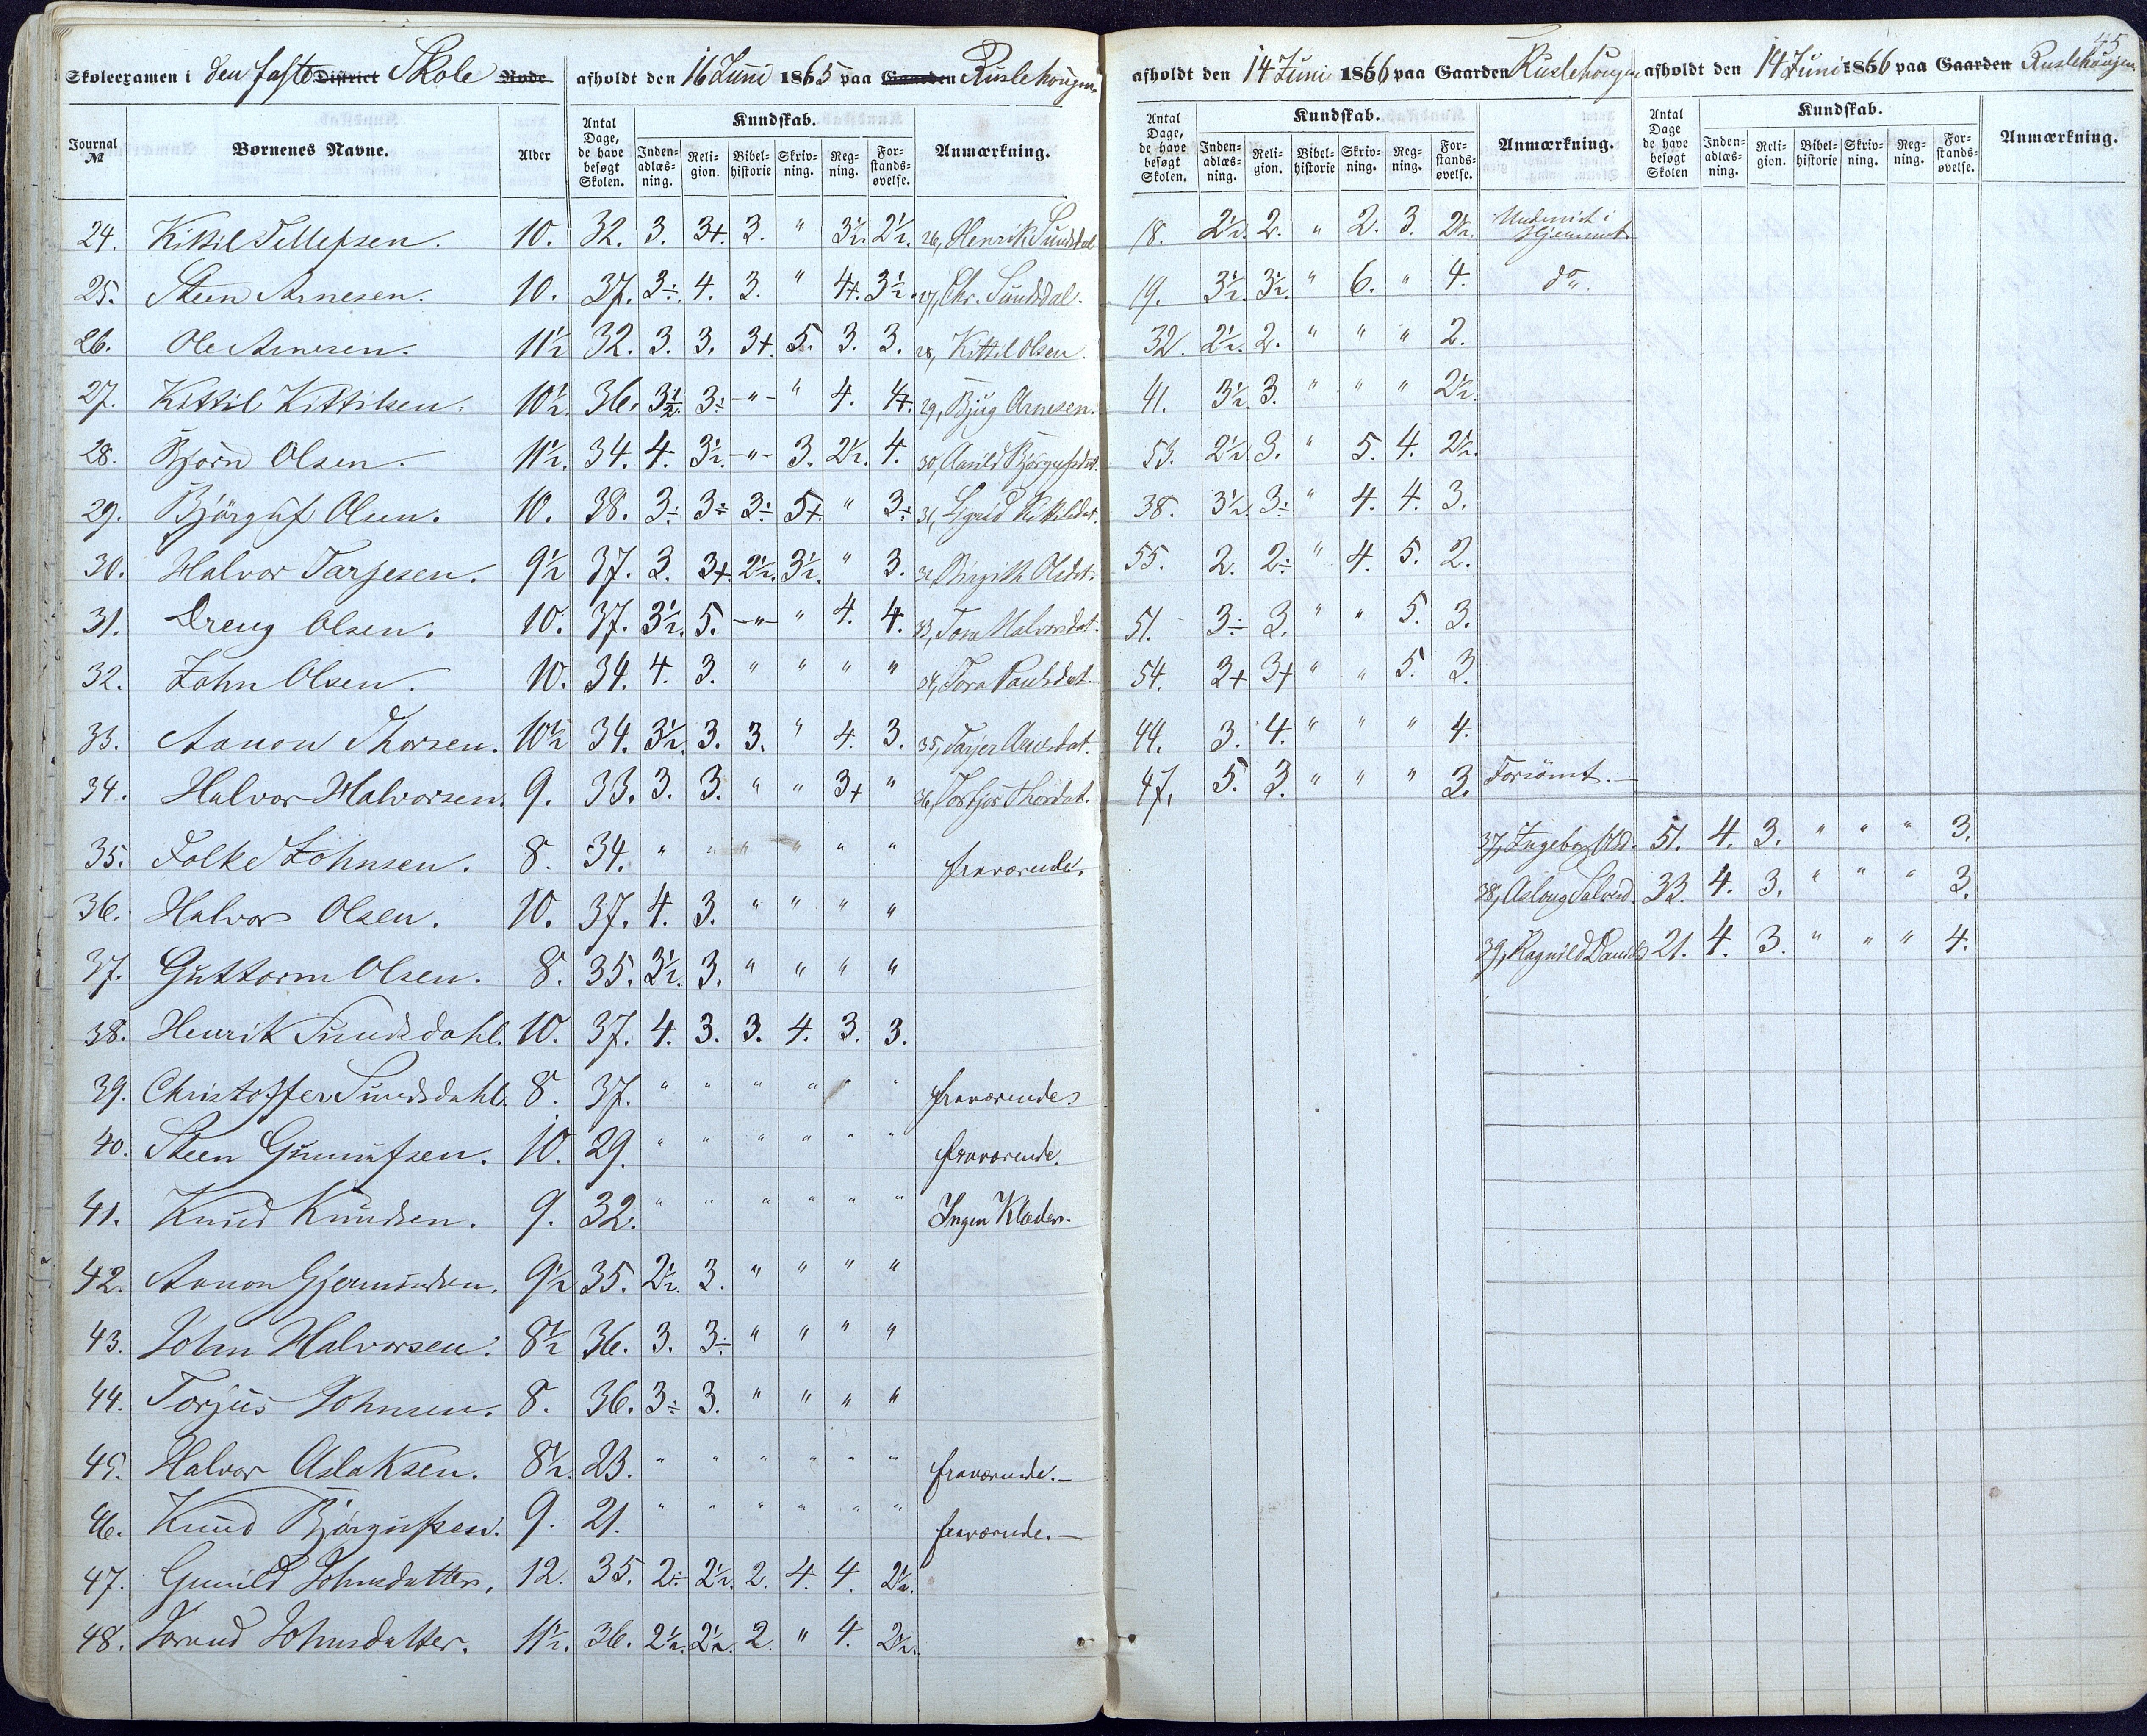 45
Skoleexamen i den faste District Skole Rode afholdt den 16 Juni 1865 paa Gaarden Ruslehougen
Journal № Børnenes Navne. Alder Antal Dage, de have besøgt Skolen. Kundskab. Inden-adlæs-ning. Reli-gion. Bibel-historie Skriv-ning. Reg-ning. For-stands-øvelse. Anmærkning.
24. Kittil Tellefsen. 10. 32. 3. 3+. 3. " 3½. 2½. 26, Henrik Sundsdal
25. Steen Arnesen. 10. 37. 3÷. 4. 3. " 4+. 3½. 27, Chr. Sundsdal.
26. Ole Arnesen. 11½ 32. 3. 3. 3+. 5. 3. 3. 28, Kittil Olsen.
27. Kittil Kittilsen. 10½. 36. 3½. 3÷ -"- " 4. 4+. 29, Bjug Arnesen.
28. Bjørn Olsen. 11½. 34. 4. 3½. -"- 3. 2½. 4. 30, Aasild Bjørgufsdat.
29. Bjørguf Olsen. 10. 38. 3÷ 3÷ 3÷ 5+. " 3÷ 31, Sigrid Kittilsdat.
30. Halvor Tarjesen. 9½ 37. 3. 3+. 2½. 3½. " 3. 32, Birgith Olsdat.
31. Dreng Olsen. 10. 37. 3½. 5. -"- " 4. 4. 33, Tora Halvorsdat.
32. John Olsen. 10. 34. 4. 3. " " " " 34, Tora Paulsdat.
33. Aanon Thorsen. 10½ 34. 3½. 3. 3. " 4. 3. 35, Tarjer Aanesdat.
34. Halvor Halvorsen. 9. 33. 3. 3. " " 3+ " 36, Torbjør Thorsdat.
35. Folke Johnsen. 8. 34. " " " " " " fraværende.
36. Halvor Olsen. 10. 37. 4. 3. " " " "
37. Guttorm Olsen. 8. 35. 3½. 3. " " " "
38. Henrik Sundsdahl. 10. 37. 4. 3. 3. 4. 3. 3.
39. Christoffer Sundsdahl. 8. 37. " " " " " " fraværende
40. Steen Gunnufsen. 10. 29. " " " " " " fraværende.
41. Knud Knudsen. 9. 32. " " " " " " Ingen Klæder.
42. Aanon Gjermundsen. 9½ 35. 2½. 3. " " " "
43. John Halvorsen. 8½ 36. 3. 3÷ " " " "
44. Torjus Johnsen. 8. 36. 3÷ 3. " " " "
45. Halvor Aslaksen. 8½. 23. " " " " " " fraværende.—
46. Knud Bjørgufsen. 9. 21. " " " " " " fraværende.—
47. Gunild Johnsdatter. 12. 35. 2÷ 2½. 2. 4. 4. 2½.
48. Jorand Johnsdatter. 11½. 36. 2½. 2½. 2. " 4. 2½.
afholdt den 14 Juni 1866 paa Gaarden Ruslehougen
Antal Dage, de have besøgt Skolen. Kundskab. Inden-adlæs-ning. Reli-gion. Bibel-historie Skriv-ning. Reg-ning. For-stands-øvelse. Anmærkning.
18. 2½. 2. " 2. 3. 2½. Underviist i Hjemmet
19. 3½. 3½. " 6. " 4. do.
32. 2½. 2. " " " 2.
41. 3½. 3. " " " 2½.
53. 2½. 3. " 5. 4. 2½.
38. 3½. 3÷ " 4. 4. 3.
55. 2. 2÷ " 4. 5. 2.
51. 3÷ 3. " " 5. 3.
54. 3+ 3+ " " 5. 3.
44. 3. 4. " " " 4.
47. 5. 3. " " " 3. Forsömt.—
afholdt den 14 Juni 1866 paa Gaarden Ruslehougen
Antal Dage de have besøgt Skolen Kundskab. Inden-adlæs-ning. Reli-gion. Bibel-historie Skriv-ning. Reg-ning. For-stands-øvelse. Anmærkning.
37, Ingeborg Olsd. 51. 4. 3. " " " 3.
38, Aslaug Salvesd. 33. 4. 3. " " " 3.
39, Ragnild Daniels 21. 4. 3. " " " 4.